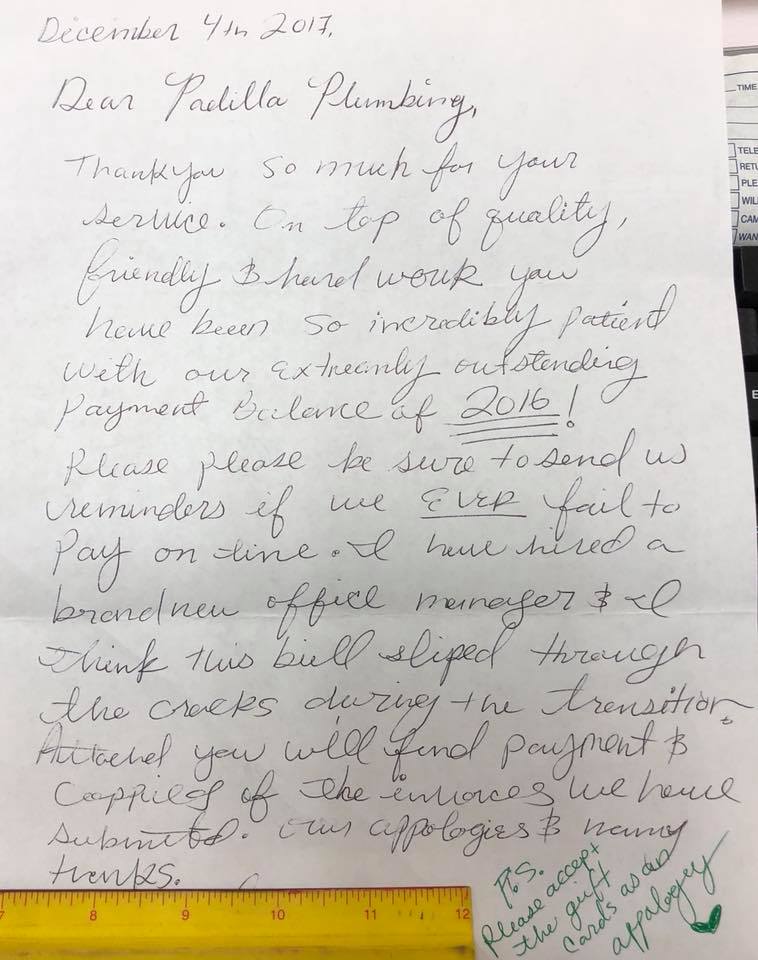 December 4th 2017,
Dear Padilla Plumbing,
Thankyou so much for your
service. On top of quality,
friendly & hard work you
have been so incredibly patient
with our extreanly outstanding
payment Balance of 2016!
Please please be sure to send us
reminders if we EVER fail to
pay on time. I have hired a
brand new office manager & I
think this bill sliped through
the cracks during the transition.
Attached you will find payment &
coppies of the invoices we have
submitted. Our appologies & many
thanks.
P.S.
Please accept
the gift
cards as an
appalogey
TIME
TELE
RETU
PLE
WIL
CAM
WAN
E
7 8 9 10 11 12